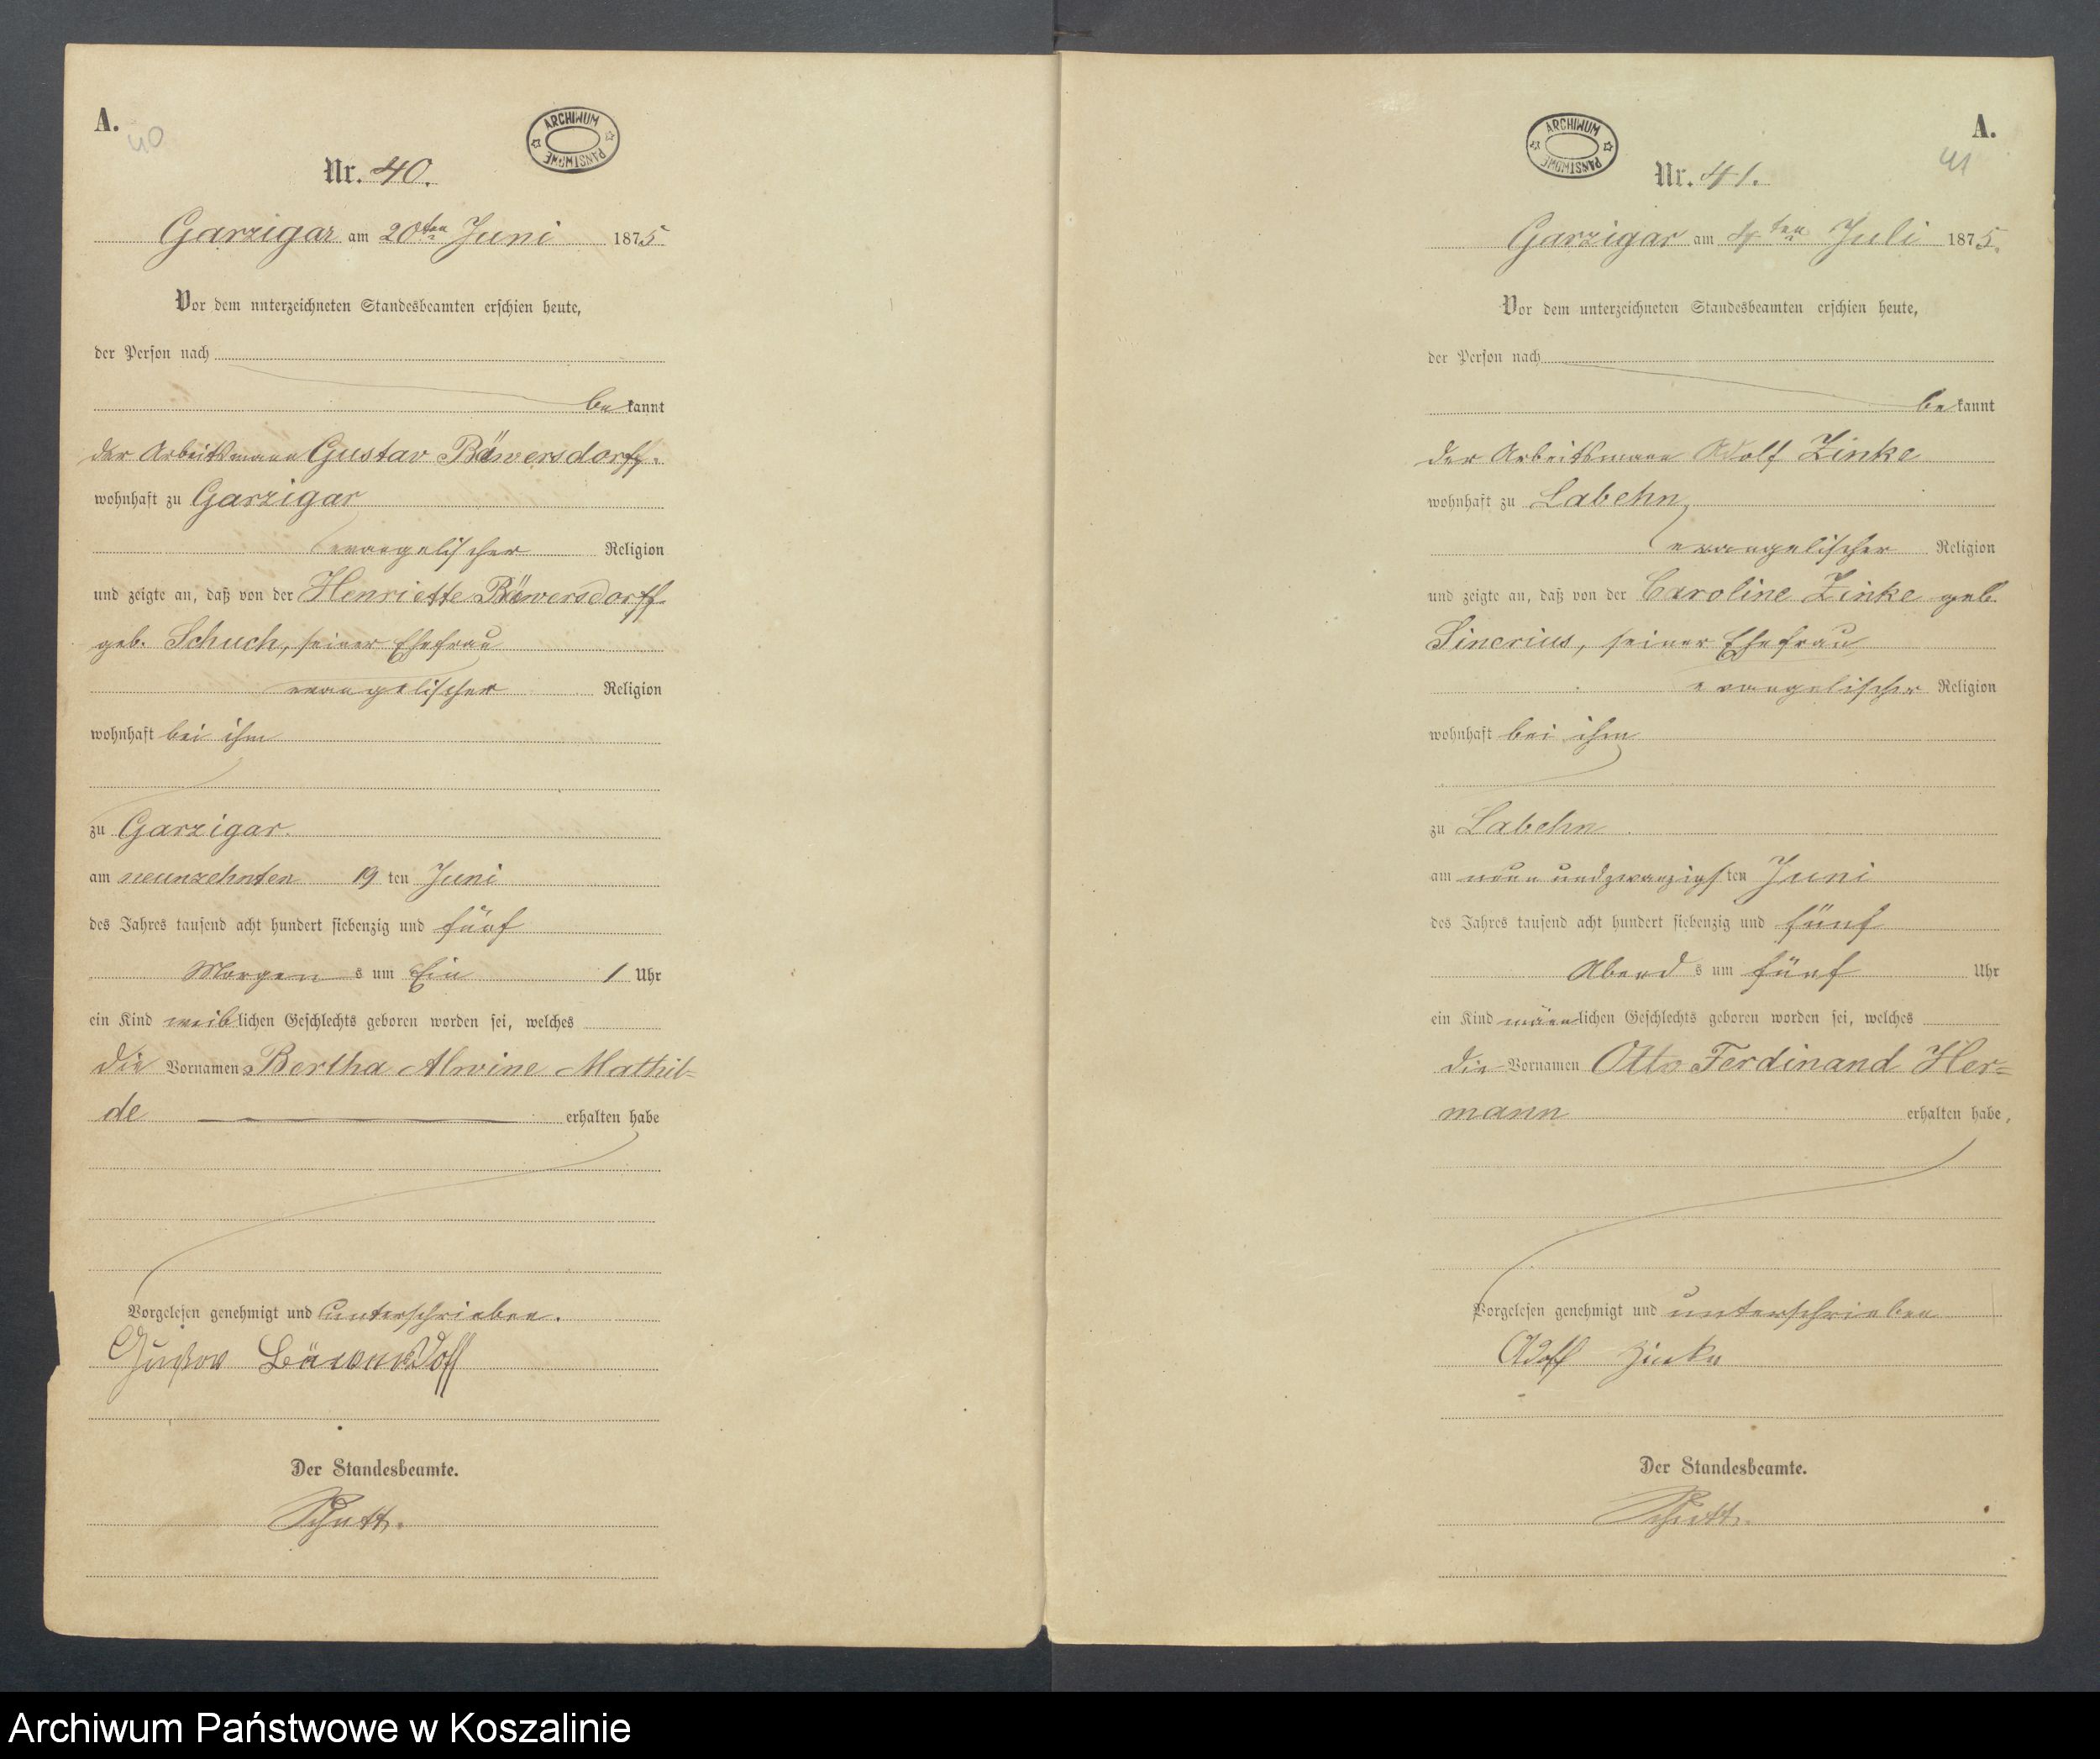 A.
40
ARCHIWUM PAŃSTWOWE
Nr. 40.
Garzigar am 20ten Juni 1875
Vor dem unterzeichneten Standesbeamten erschien heute,
der Person nach
be kannt
der Arbeitsmann Gustav Bäwersdorff.
wohnhaft zu Garzigar
evangelischer Religion
und zeigte an, daß von der Henriette Bäwersdorff
geb. Schuch, seiner Ehefrau
evangelischer Religion
wohnhaft bei ihm
zu Garzigar.
am neunzehnten 19 ten Juni
des Jahres tausend acht hundert siebenzig und fünf
Morgen s um Ein 1 Uhr
ein Kind weiblichen Geschlechts geboren worden sei, welches
die Vornamen Bertha Alwine Mathil=
de erhalten habe
Vorgelesen genehmigt und unterschrieben.
Gustav Bäwersdorff
Der Standesbeamte.
Schutt.
A.
41
ARCHIWUM PAŃSTWOWE
Nr. 41.
Garzigar am 4ten Juli 1875.
Vor dem unterzeichneten Standesbeamten erschien heute,
der Person nach
be kannt
der Arbeitsmann Adolf Zinke
wohnhaft zu Labehn
evangelischer Religion
und zeigte an, daß von der Caroline Zinke geb.
Sinerius, seiner Ehefrau
evangelischer Religion
wohnhaft bei ihm
zu Labehn
am neun und zwanzigsten Juni
des Jahres tausend acht hundert siebenzig und fünf
Abend s um fünf Uhr
ein Kind männlichen Geschlechts geboren worden sei, welches
die Vornamen Otto Ferdinand Her=
mann erhalten habe,
Vorgelesen genehmigt und unterschrieben
Adolf Zinke
Der Standesbeamte.
Schutt.
Archiwum Państwowe w Koszalinie